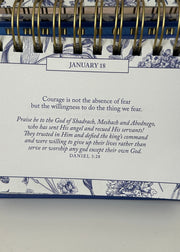 JANUARY 18
Courage is not the absence of fear
but the willingness to do the thing we fear.
Praise be to the God of Shadrach, Meshach and Abednego,
who has sent His angel and rescued His servants!
They trusted in Him and defied the king's command
and were willing to give up their lives rather than
serve or worship any god except their own God.
DANIEL 3:28